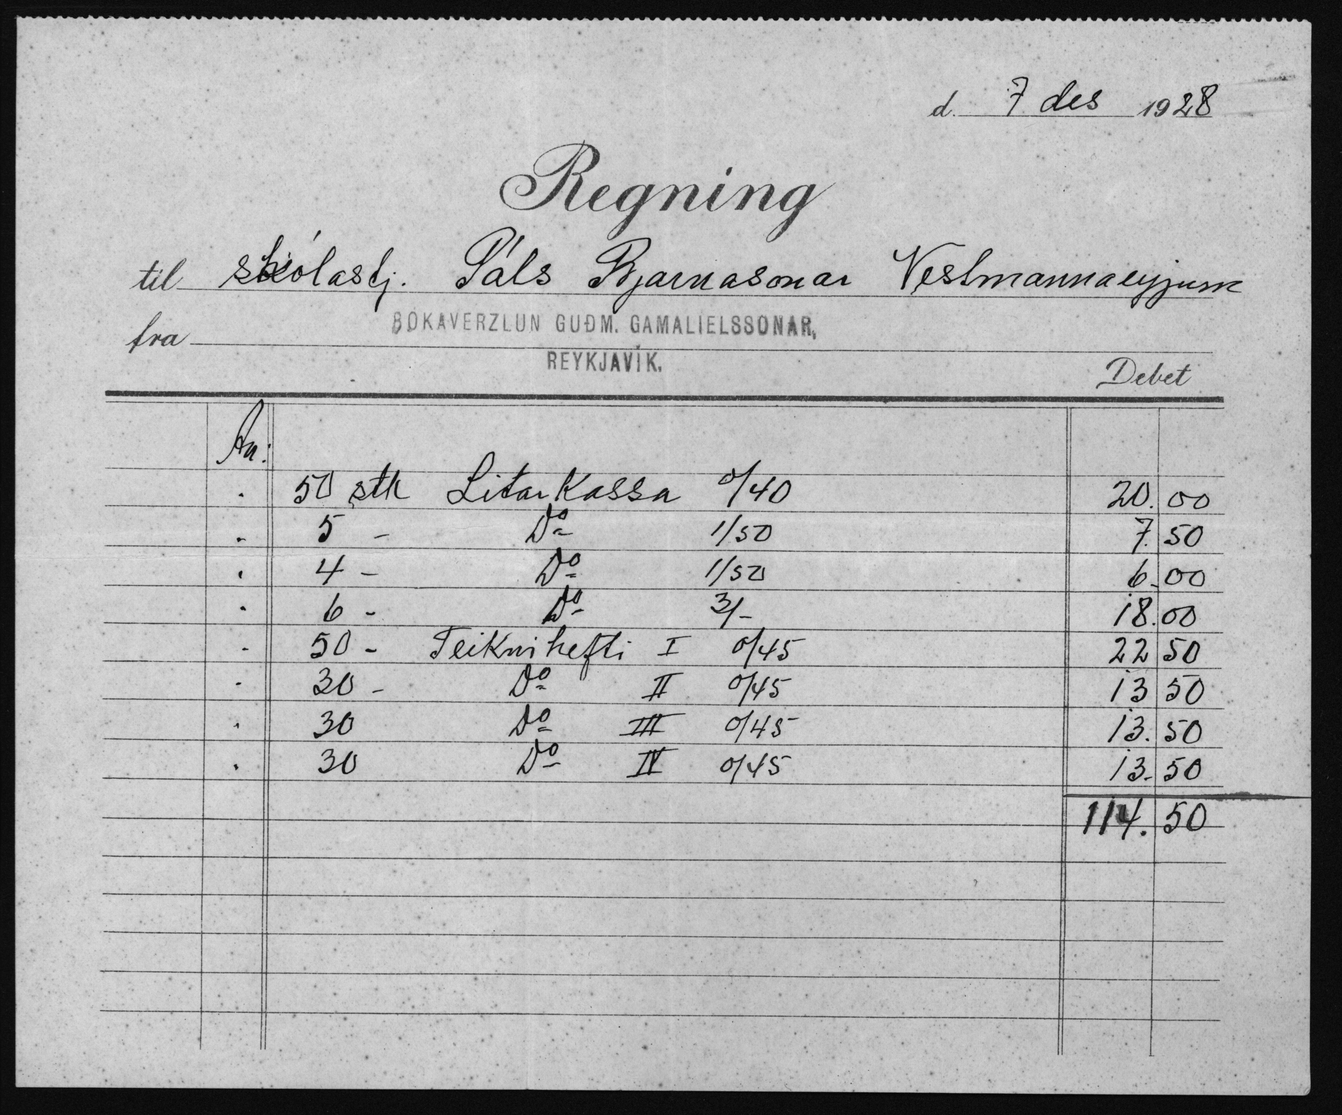 d. 7 des 1928
Regning
til skólastj. Páls Bjarnasonar Vestmannaeyjum
fra BÓKAVERZLUN GUÐM. GAMALÍELSSONAR,
REYKJAVÍK.
Debet
An:
50 stk Litarkassa 0/40 20.00
5 - Do 1/50 7.50
4 - Do 1/50 6.00
6 - Do 3/- 18.00
50 - Teiknihefti I 0/45 22 50
30 - Do II 0/45 13 50
30 Do III 0/45 13.50
30 Do IV 0/45 13.50
114.50